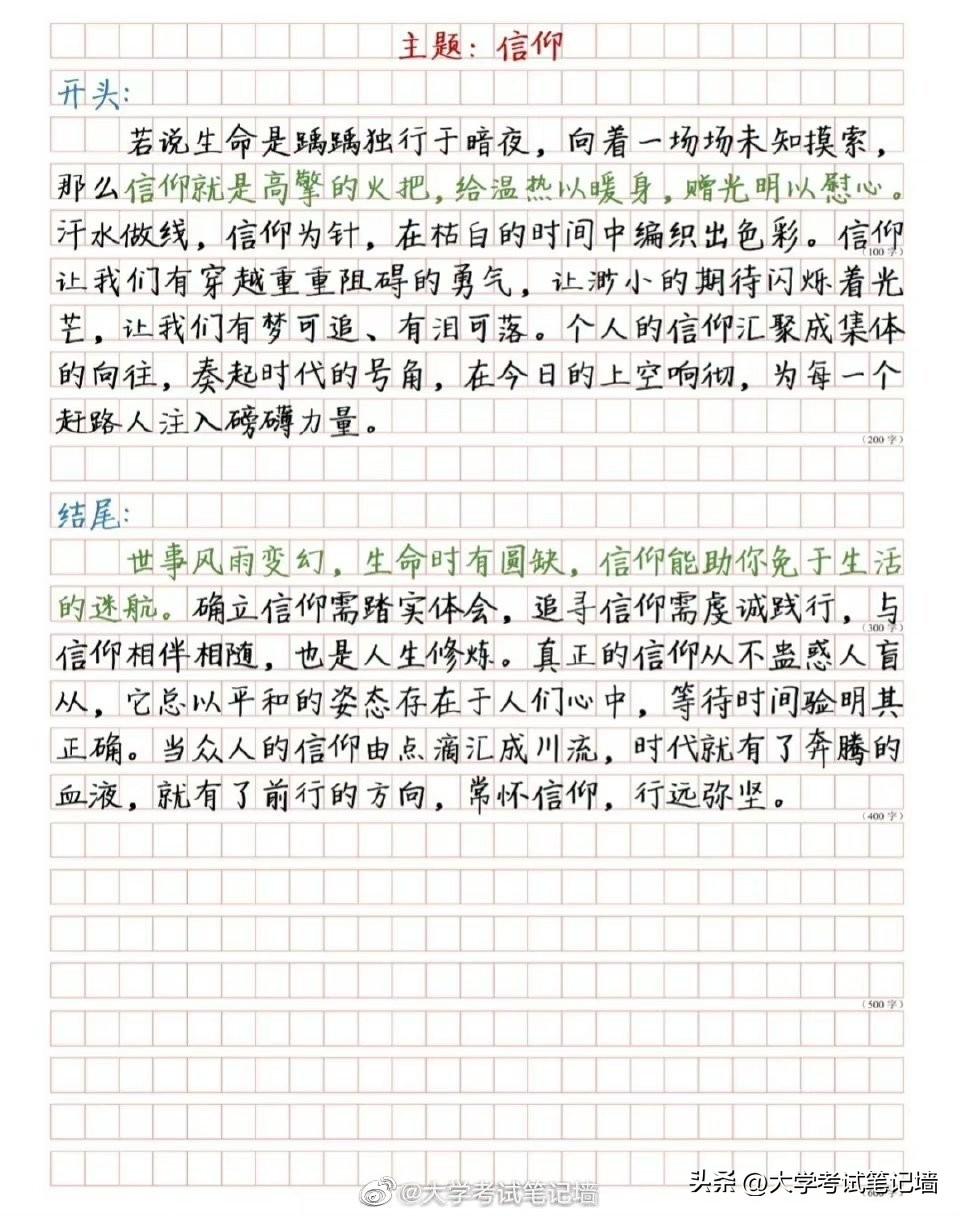 主题：信仰
开头：
若说生命是踽踽独行于暗夜，向着一场场未知摸索，
那么信仰就是高擎的火把，给温热以暖身，赠光明以慰心。
汗水做线，信仰为针，在枯白的时间中编织出色彩。信仰
（100字）
让我们有穿越重重阻碍的勇气，让渺小的期待闪烁着光
芒，让我们有梦可追、有泪可落。个人的信仰汇聚成集体
的向往，奏起时代的号角，在今日的上空响彻，为每一个
赶路人注入磅礴力量。
（200字）
结尾：
世事风雨变幻，生命时有圆缺，信仰能助你免于生活
的迷航。确立信仰需踏实体会，追寻信仰需虔诚践行，与
（300字）
信仰相伴相随，也是人生修炼。真正的信仰从不蛊惑人盲
从，它总以平和的姿态存在于人们心中，等待时间验明其
正确。当众人的信仰由点滴汇成川流，时代就有了奔腾的
血液，就有了前行的方向，常怀信仰，行远弥坚。
（400字）
（500字）
头条 @大学考试笔记墙
@大学考试笔记墙